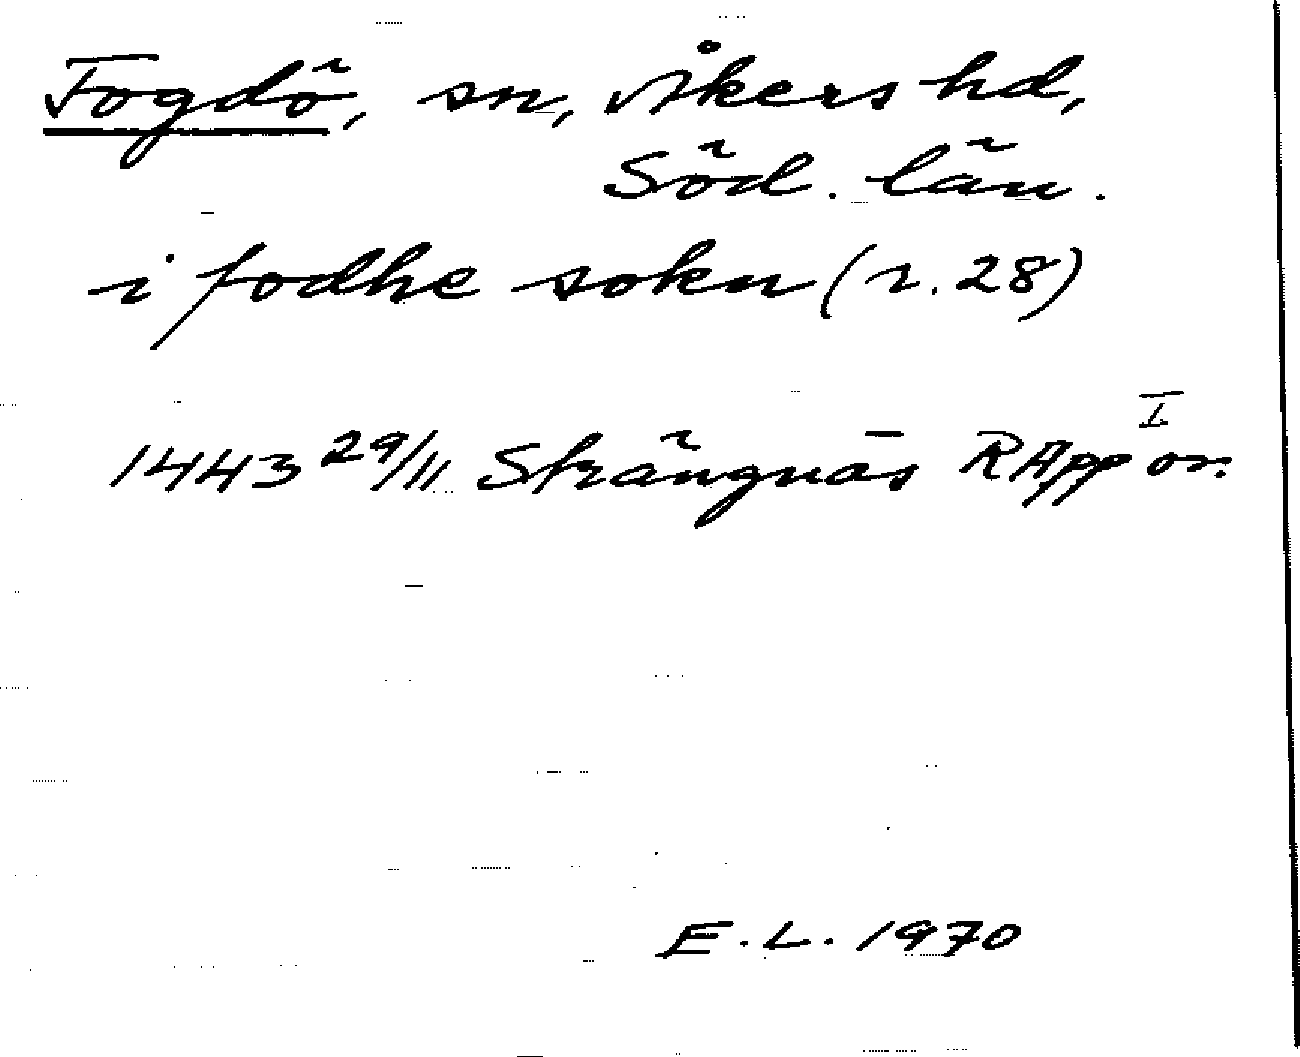 Fogdö, sn, Åkers hd,
Söd. län.
i fodhe sokn (r. 28)
I
1443 29/11 Strängnäs RApp or.
E.L. 1970